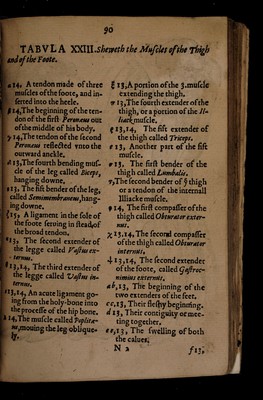 90
TABVLA XXIII. Sheweth the Muscles of the Thigh
and of the Foote.
α 14, A tendon made of three
muscles of the foote, and in-
serted into the heele.
β 14, The beginning of the ten-
don of the first Peronæus out
of the middle of his body.
γ 14, The tendon of the second
Peronæus reflected vnto the
outward anckle.
δ 13, The fourth bending mus-
cle of the leg called Biceps,
hanging downe.
13, The fift bender of the leg,
called Semimembraneus, hang-
ing downe.
ζ 13, A ligament in the sole of
the foote serving in stead of
the broad tendon.
13, The second extender of
the legge called Vastus ex-
ternus.
13, 14, The third extender of
the legge called Vastus in-
ternus.
13, 14, An acute ligament go-
ing from the holy-bone into
the processe of the hip bone.
14, The muscle called Poplitæ-
us, mouing the leg oblique-
ly.
ξ 13, A portion of the 3. muscle
extending the thigh.
13, The fourth extender of the
thigh, or a portion of the Il-
liack muscle.
ρ 13, 14, The fift extender of
the thigh called Triceps.
σ 13, Another part of the fift
muscle.
13, The first bender of the
thigh called Lumbalis.
The second bender of ye thigh
or a tendon of the internall
Illiacke muscle.
φ 14, The first compasser of the
thigh called Obturator exter-
nus.
χ 13, 14, The second compasser
of the thigh called Obturator
internus.
ψ 13, 14, The second extender
of the foote, called Gastroc-
nimius externus.
ab, 13, The beginning of the
two extenders of the feet.
cc, 13, Their fleshy beginning.
d 13, Their contiguity or mee-
ting together.
ee, 13, The swelling of both
the calues.
N 2 f 13,